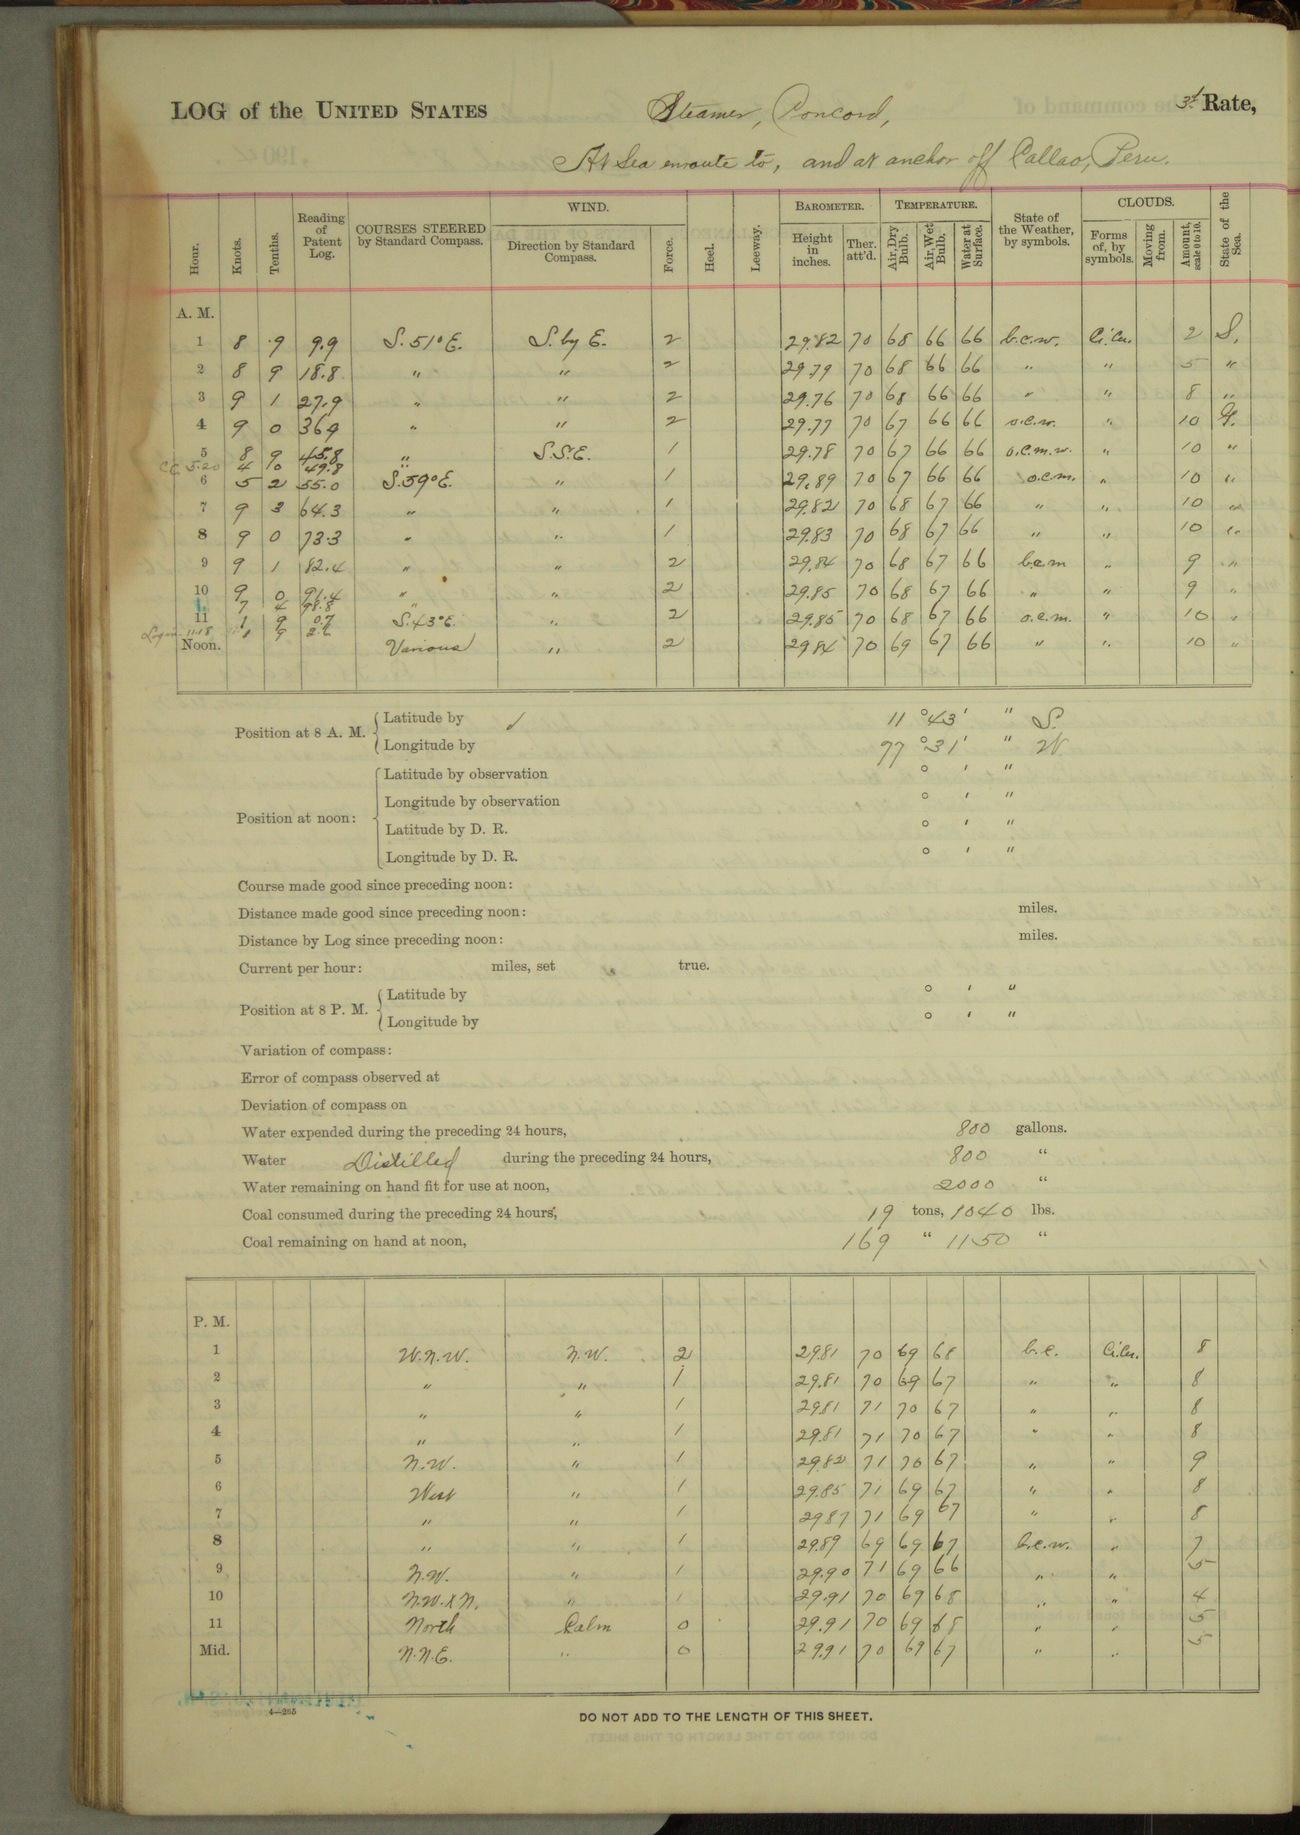 LOG of the UNITED STATES Steamer, Concord, 3d Rate,
At Sea enroute to, and at anchor off Callao, Peru.
Hour. Knots. Tenths. Reading of Patent Log. COURSES STEERED by Standard Compass. WIND. Direction by Standard Compass. Force. Heel. Leeway. BAROMETER. Height in inches. Ther. att'd. TEMPERATURE. Air, Dry Bulb. Air, Wet Bulb. Water at Surface. State of the Weather, by symbols. CLOUDS. Forms of, by symbols. Moving from. Amount, scale 0 to 10. State of the Sea.
A. M.
1 8 9 9.9 S. 51° E. S. by E. 2 29.82 70 68 66 66 b.c.w. Ci.Cu. 2 S.
2 8 9 18.8 " " 2 29.79 70 68 66 66 " " 5 "
3 9 1 27.9 " " 2 29.76 70 68 66 66 " " 8 "
4 9 0 36.9 " " 2 29.77 70 67 66 66 o.c.w. " 10 G.
5 8 9 45.8 " S.S.E. 1 29.78 70 67 66 66 o.c.m.w. " 10 "
C.C. 5.20 4 10 49.8 "
6 5 2 55.0 S. 59° E. " 1 29.89 70 67 66 66 o.c.m. " 10 "
7 9 3 64.3 " " 1 29.82 70 68 67 66 " " 10 "
8 9 0 73.3 " " 1 29.83 70 68 67 66 " " 10 "
9 9 1 82.4 " " 2 29.84 70 68 67 66 b.c.m " 9 "
10 9 0 91.4 " " 2 29.85 70 68 67 66 " " 9 "
7 4 98.8 "
11 1 9 0.7 S. 43° E. " 2 29.85 70 68 67 66 o.c.m. " 10 "
Log in 11.18 1 9 2.6
Noon. Various " 2 29.84 70 69 67 66 " " 10 "
Position at 8 A. M. Latitude by 11 ° 43 ' " S.
Longitude by 77 ° 31 ' " W
Position at noon: Latitude by observation ° ' "
Longitude by observation ° ' "
Latitude by D. R. ° ' "
Longitude by D. R. ° ' "
Course made good since preceding noon:
Distance made good since preceding noon: miles.
Distance by Log since preceding noon: miles.
Current per hour: miles, set true.
Position at 8 P. M. Latitude by ° ' "
Longitude by ° ' "
Variation of compass:
Error of compass observed at
Deviation of compass on
Water expended during the preceding 24 hours, 800 gallons.
Water Distilled during the preceding 24 hours, 800 "
Water remaining on hand fit for use at noon, 2000 "
Coal consumed during the preceding 24 hours, 19 tons, 1040 lbs.
Coal remaining on hand at noon, 169 " 1150 "
P. M.
1 W.N.W. N.W. 2 29.81 70 69 68 b.c. Ci.Cu. 8
2 " " 1 29.81 70 69 67 " " 8
3 " " 1 29.81 71 70 67 " " 8
4 " " 1 29.81 71 70 67 " " 8
5 N.W. " 1 29.82 71 70 67 " " 9
6 West " 1 29.85 71 69 67 " " 8
7 " " 1 29.87 71 69 67 " " 8
8 " " 1 29.89 69 69 67 b.c.w. " 7
9 N.W. " 1 29.90 71 69 66 " " 5
10 N.W.xN. " 1 29.91 70 69 68 " " 4
11 North Calm 0 29.91 70 69 68 " " 5
Mid. N.N.E. " 0 29.91 70 69 67 " " 5
4—265
DO NOT ADD TO THE LENGTH OF THIS SHEET.